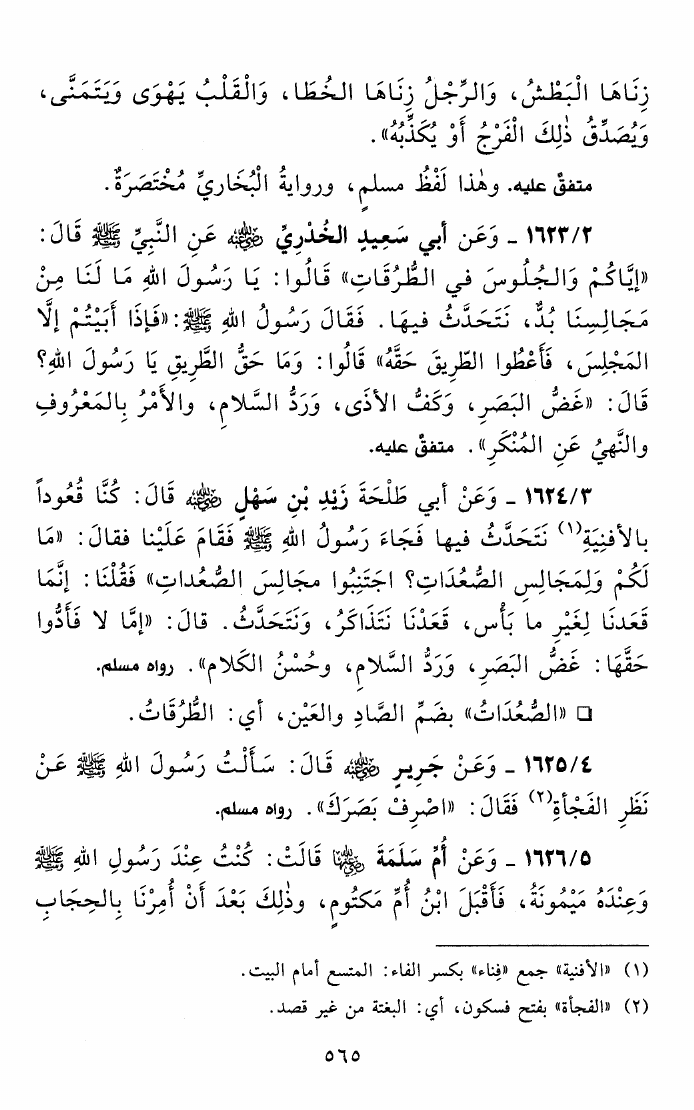 زِنَاهَا الْبَطْشُ، وَالرِّجْلُ زِنَاهَا الخُطَا، وَالْقَلْبُ يَهْوَى وَيَتَمَنَّى،
وَيُصَدِّقُ ذٰلِكَ الْفَرْجُ أَوْ يُكَذِّبُهُ».
متفقٌ عليه. وهٰذا لَفْظُ مسلمٍ، وروايةُ الْبُخَاريِّ مُخْتَصَرَةٌ.
١٦٢٣/٢ ـ وَعَن أبي سَعِيدٍ الخُدْرِيِّ رضي الله عنه عَنِ النَّبِيِّ ﷺ قَالَ:
«إيَّاكُمْ وَالجُلُوسَ في الطُّرُقَاتِ» قَالُوا: يَا رَسُولَ اللهِ مَا لَنَا مِنْ
مَجَالِسِنَا بُدٌّ، نَتَحَدَّثُ فيهَا. فَقَالَ رَسُولُ اللهِ ﷺ: «فَإذَا أَبَيْتُمْ إلَّا
المَجْلِسَ، فَأَعْطُوا الطَّرِيقَ حَقَّهُ» قَالُوا: وَمَا حَقُّ الطَّرِيقِ يَا رَسُولَ اللهِ؟
قَالَ: «غَضُّ البَصَرِ، وَكَفُّ الأذَى، وَرَدُّ السَّلامِ، والأمْرُ بِالمَعْرُوفِ
والنَّهيُ عَنِ المُنْكَرِ». متفقٌ عليه.
١٦٢٤/٣ ـ وَعَنْ أبي طَلْحَةَ زَيْدِ بْنِ سَهْلٍ رضي الله عنه قَالَ: كُنَّا قُعُوداً
بالأفنِيَةِ(١) نَتَحَدَّثُ فيها فَجَاءَ رَسُولُ اللهِ ﷺ فَقَامَ عَلَيْنا فقالَ: «مَا
لَكُمْ وَلِمَجَالِسِ الصُّعُدَاتِ؟ اجتَنِبُوا مجَالِسَ الصُّعُداتِ» فَقُلْنَا: إنَّمَا
قَعَدنَا لِغَيْرِ ما بَأْس، قَعَدْنَا نَتَذَاكَرُ، وَنَتَحَدَّثُ. قالَ: «إمَّا لا فَأَدُّوا
حَقَّهَا: غَضُّ البَصَرِ، وَرَدُّ السَّلامِ، وحُسْنُ الكَلام». رواه مسلم.
❑ «الصُّعُدَاتُ» بضَمِّ الصَّادِ والعَيْن، أي: الطُّرُقَاتُ.
١٦٢٥/٤ ـ وَعَنْ جَرِيرٍ رضي الله عنه قَالَ: سَأَلْتُ رَسُولَ اللهِ ﷺ عَنْ
نَظَرِ الفَجْأةِ(٢) فَقَالَ: «اصْرِفْ بَصَرَكَ». رواه مسلم.
١٦٢٦/٥ ـ وَعَنْ أُمِّ سَلَمَةَ رضي الله عنها قَالَتْ: كُنْتُ عِنْدَ رَسُولِ اللهِ ﷺ
وَعِنْدَهُ مَيْمُونَةُ، فَأَقْبَلَ ابْنُ أُمِّ مَكتُومٍ، وذٰلِكَ بَعْدَ أَنْ أُمِرْنَا بِالحِجَابِ
(١) «الأفنية» جمع «فِناء» بكسر الفاء: المتسع أمام البيت.
(٢) «الفجأة» بفتح فسكون، أي: البغتة من غير قصد.
٥٦٥